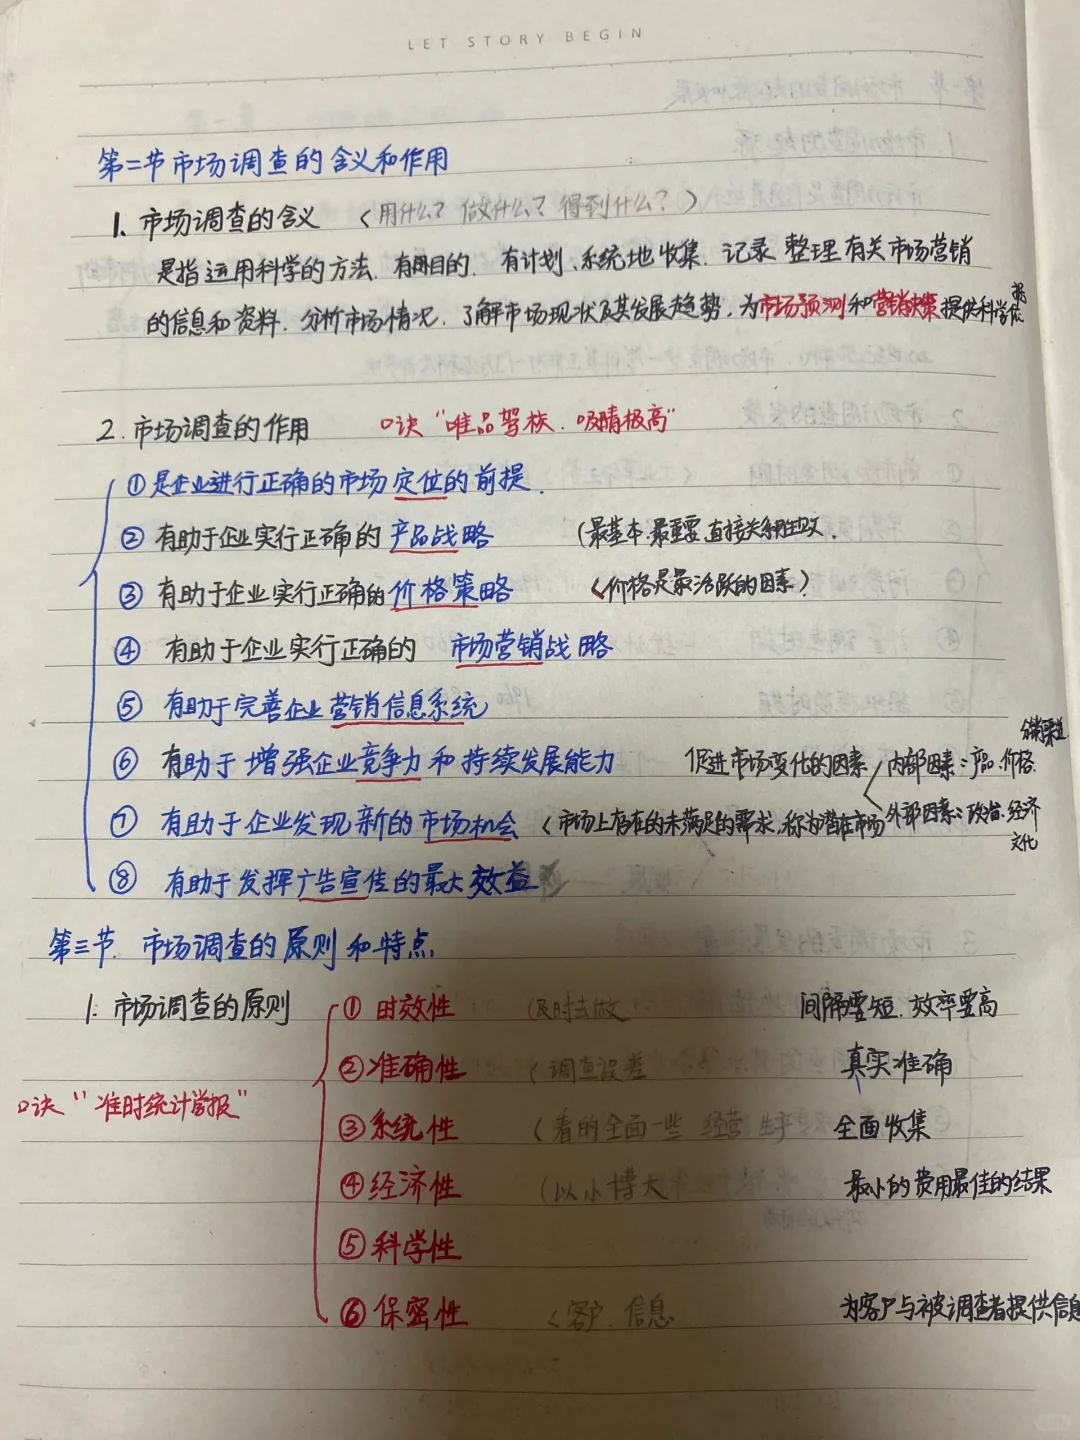 LET STORY BEGIN
第二节市场调查的含义和作用
1. 市场调查的含义 (用什么? 做什么? 得到什么?)
是指运用科学的方法、有目的、有计划、系统地收集、记录 整理 有关市场营销
的信息和资料、分析市场情况、了解市场现状及其发展趋势,为市场预测和营销决策提供科学依据
2. 市场调查的作用 口诀“唯品驾校、吸睛极高”
①是企业进行正确的市场定位的前提.
②有助于企业实行正确的产品战略 (最基本.最重要.直接关系
③有助于企业实行正确的价格策略 (价格是最活跃的因素)
④有助于企业实行正确的 市场营销战略
⑤有助于完善企业营销信息系统
⑥有助于增强企业竞争力和持续发展能力 促进市场变化的因素 内部因素:产品.价格.分销渠道
⑦有助于企业发现新的市场机会 (市场上存在的未满足的需求,称为潜在市场 外部因素:政治.经济 文化
⑧有助于发挥广告宣传的最大效益
第三节.市场调查的原则和特点
1. 市场调查的原则 ①时效性 (及时去做 间隔要短.效率要高
②准确性 (调查误差 真实准确
口诀“准时统计学报” ③系统性 (看的全面一些 经营 生产 全面收集
④经济性 (以小博大 最小的费用最佳的结果
⑤科学性
⑥保密性 (客户、信息 为客户与被调查者提供信息